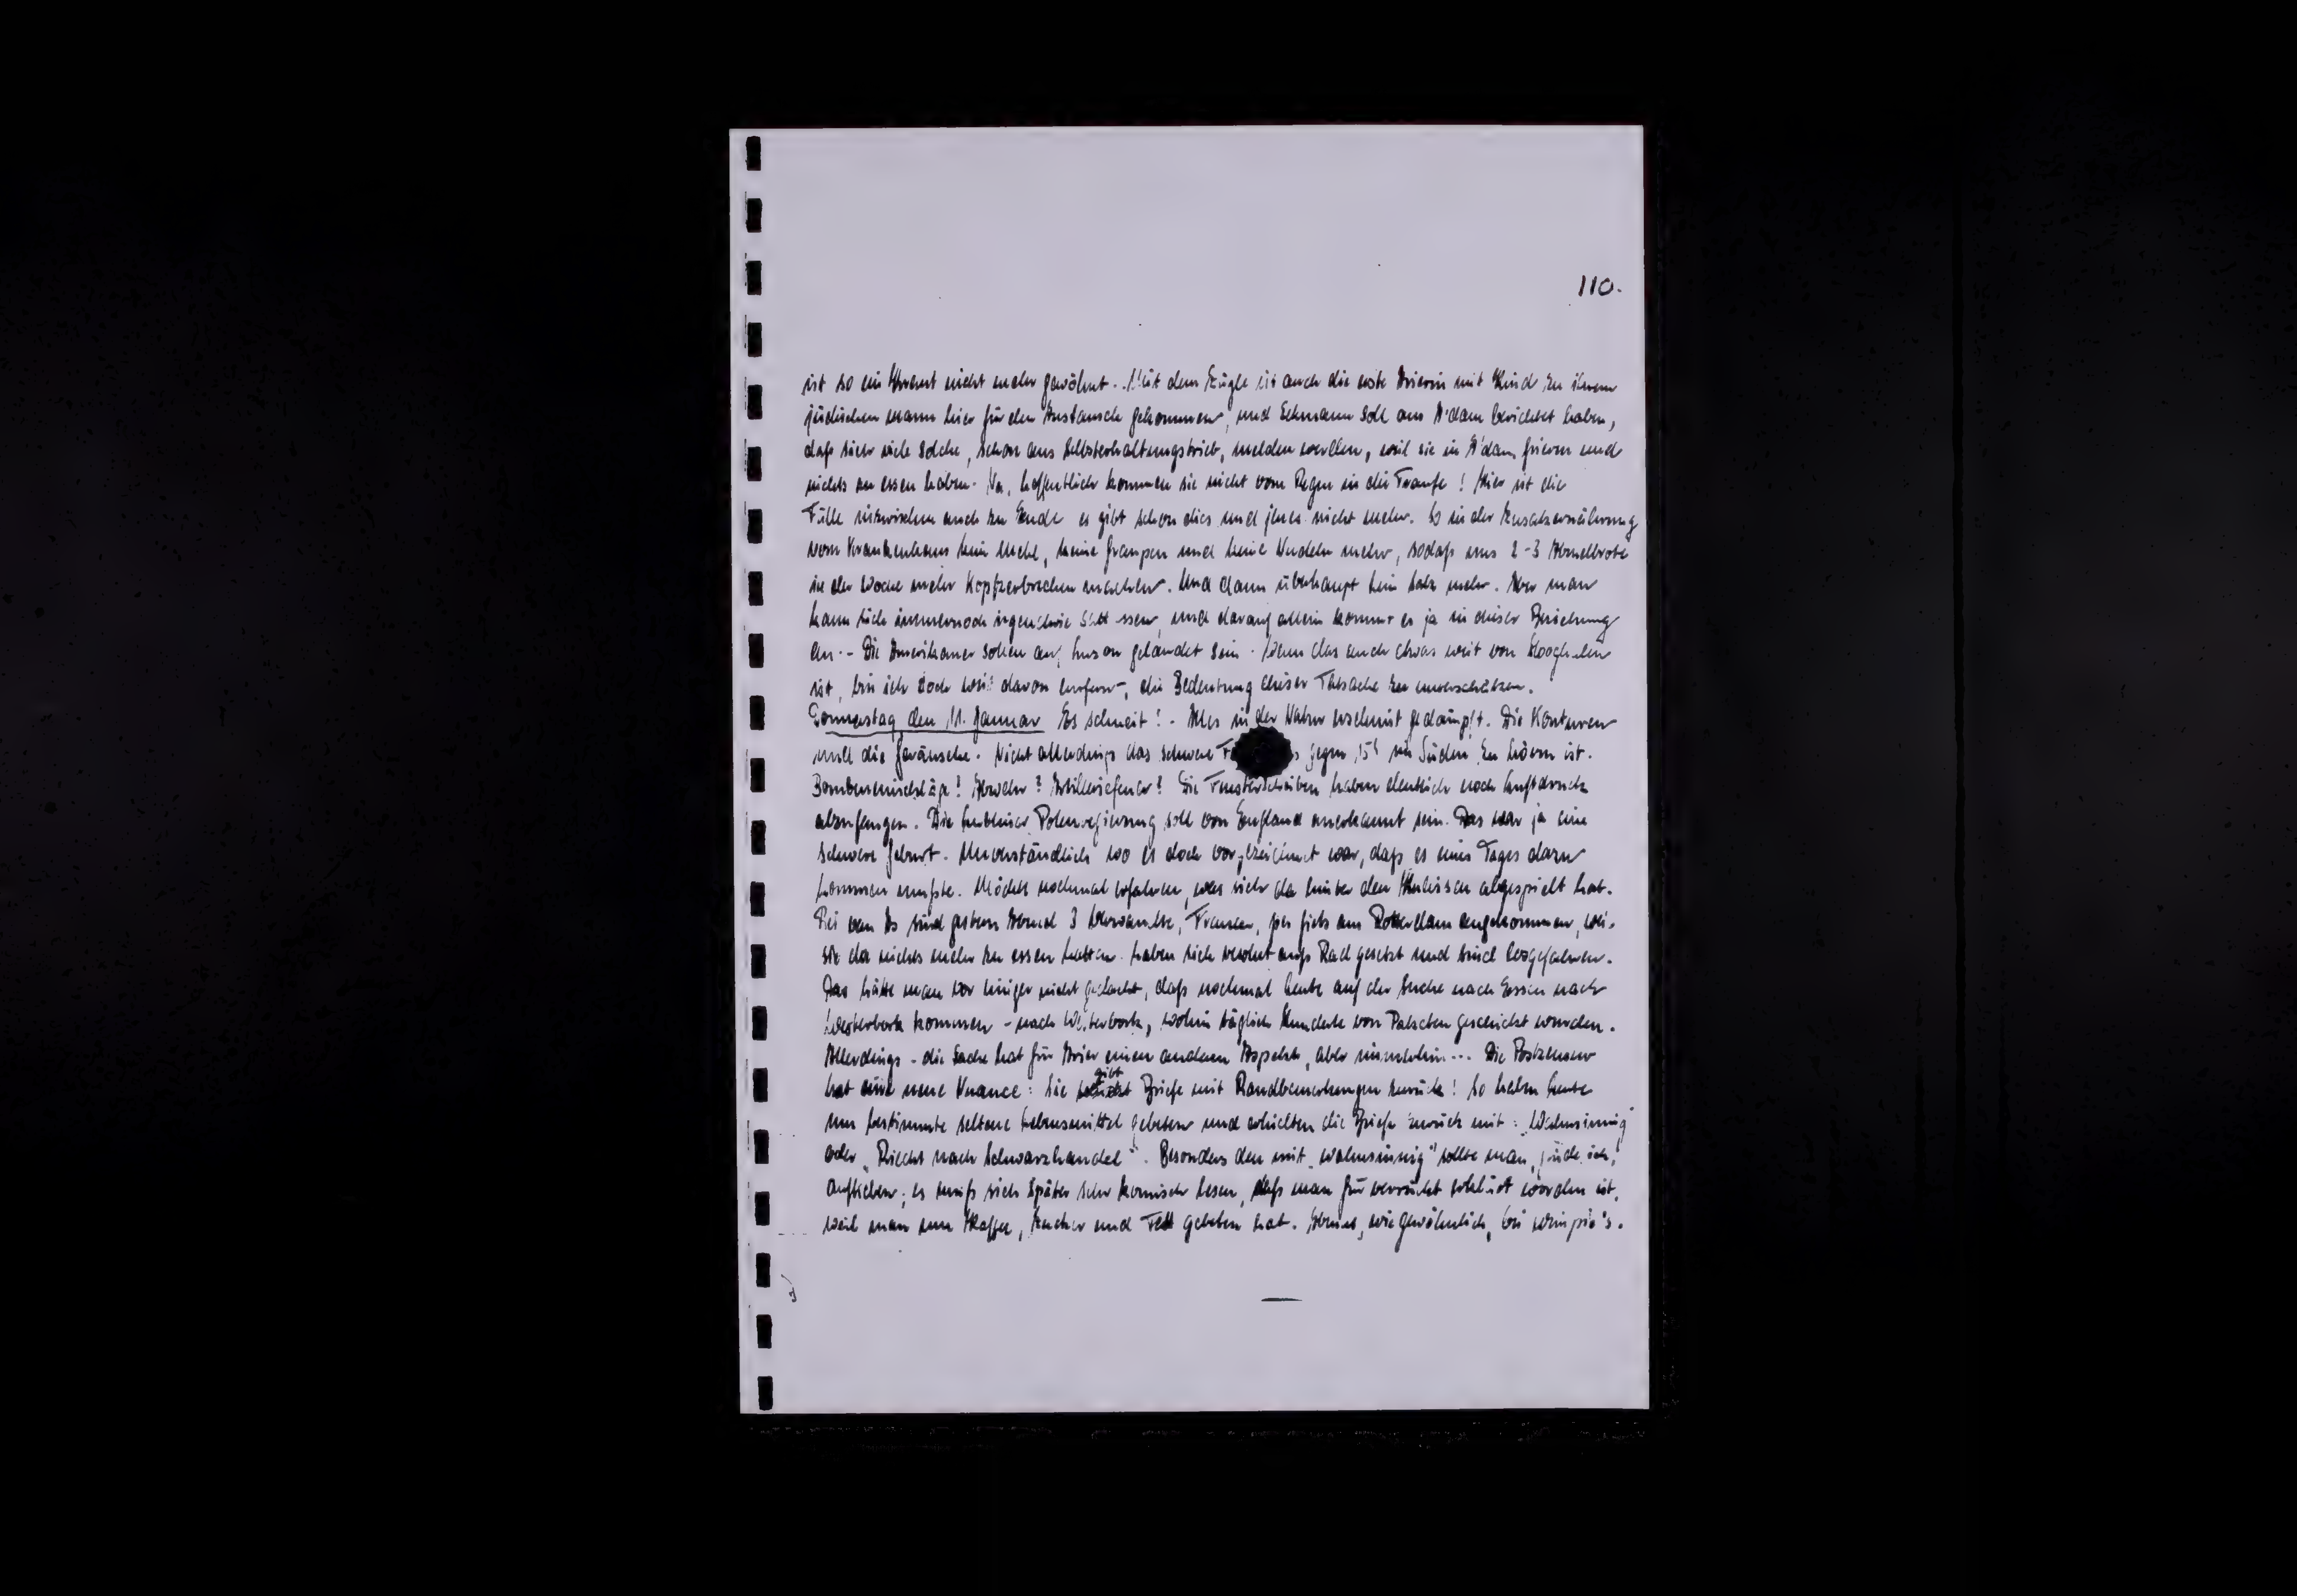 110.
ist so ein Event nicht mehr gewöhnt. Mit dem Zügle ist auch die erste Arierin mit Kind zu ihrem
jüdischen Mann hier für den Austausch gekommen, und Eckmann soll aus A'dam berichtet haben,
daß sich viele solche, schon aus Selbsterhaltungstrieb, melden werden, weil sie in A'dam frieren und
nichts zu essen haben. Na, hoffentlich kommen sie nicht vom Regen in die Traufe! Hier ist die
Fülle inzwischen auch zu Ende es gibt schon dies und jenes nicht mehr. So in der Zusatzernährung
vom Krankenhaus kein Mehl, keine Graupen und keine Nudeln mehr, sodaß uns 2-3 Abendbrote
in der Woche mehr Kopfzerbrechen machen. Und dann überhaupt kein Salz mehr. Aber man
kann sich immernoch irgendwie satt essen, und darauf allein kommt es ja in dieser Beziehung
an. - Die Amerikaner sollen auf Luzon gelandet sein. Wenn das auch etwas weit von Hooghalen
ist, bin ich doch weit davon entfernt, die Bedeutung dieser Tatsache zu unterschätzen.
Donnerstag den 11. Januar Es schneit! - Alles in der Natur erscheint gedämpft. Die Konturen
und die Geräusche. Nicht allerdings das schwere gegen 15h im Süden zu hören ist.
Bombeneinschläge? Abwehr? Artilleriefeuer? Die Fensterscheiben haben deutlich noch Luftdruck
abzufangen. Die Lubliner Polenregierung soll von England anerkannt sein. Das war ja eine
schwere Geburt. Unverständlich wo es doch vorgezeichnet war, daß es eines Tages dazu
kommen mußte. Möchte nochmal erfahren, was sich da hinter den Kulissen abgespielt hat.
Bei van As sind gestern Abend 3 Verwandte, Frauen, per fiets aus Rotterdam angekommen, weil
sie da nichts mehr zu essen hatten. Haben sich resolut aufs Rad gesetzt und sind losgefahren.
Das hätte man vor einiger nicht gedacht, daß nochmal Leute auf der Suche nach Essen nach
Westerbork kommen - nach Westerbork, wohin täglich Hunderte von Paketchen geschickt wurden.
Allerdings - die Sache hat für Arier einen andern Aspekt, aber immerhin... Die Postzensur
hat eine neue Nuance: Sie gibt Briefe mit Randbemerkungen zurück! So haben Leute
um bestimmte seltene Lebensmittel gebeten und erhielten die Briefe zurück mit: „Wahnsinnig"
oder „Riecht nach Schwarzhandel". Besonders den mit „wahnsinnig" sollte man, finde ich,
aufheben; es muß sich später sehr komisch lesen, daß man für verrückt erklärt worden ist,
weil man um Kaffee, Zucker und Fett gebeten hat. Abends, wie gewöhnlich, bei